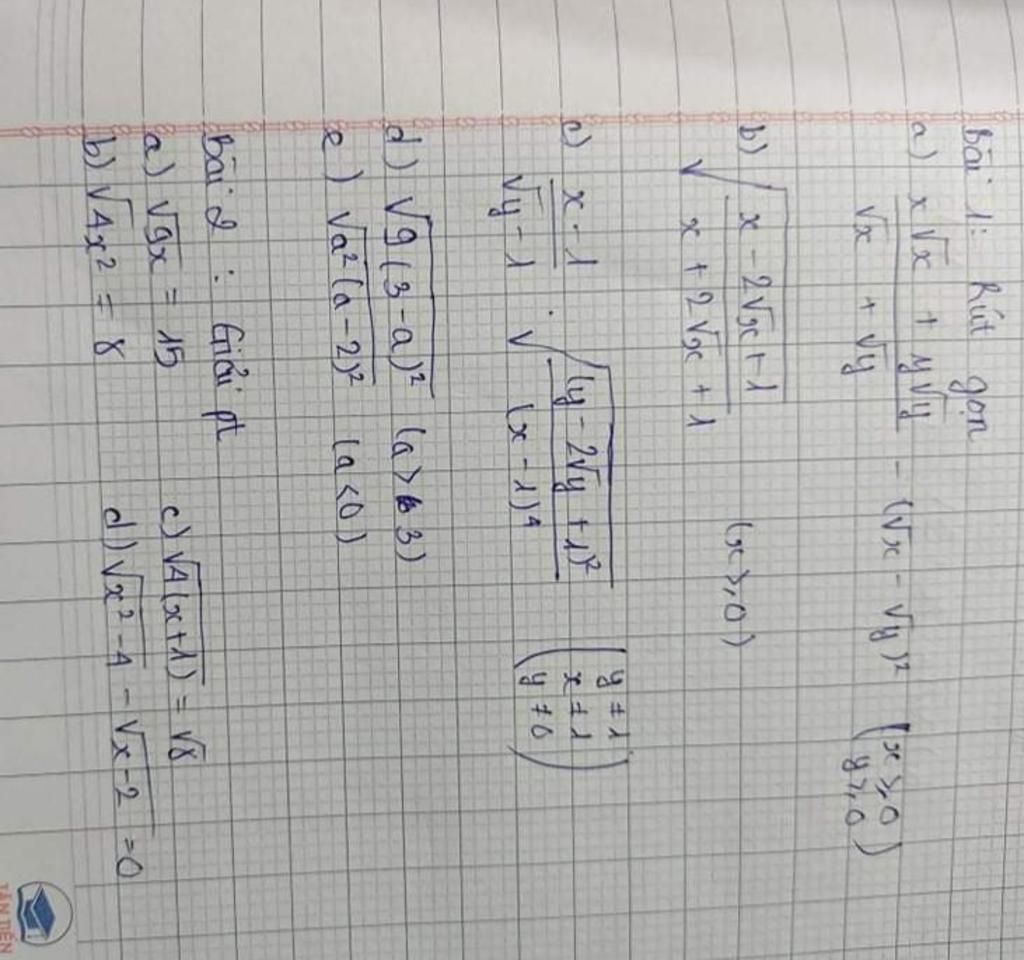 Bài 1: Rút gọn
a) \frac{x\sqrt{x} + y\sqrt{y}}{\sqrt{x} + \sqrt{y}} - (\sqrt{x} - \sqrt{y})^2 (x ≥ 0 y ≥ 0)
b) \sqrt{\frac{x - 2\sqrt{x} + 1}{x + 2\sqrt{x} + 1}} (x ≥ 0)
c) \frac{x - 1}{\sqrt{y} - 1} \cdot \sqrt{\frac{(y - 2\sqrt{y} + 1)^2}{(x - 1)^4}} (y ≠ 1 x ≠ 1 y ≠ 0)
d) \sqrt{9(3 - a)^2} (a > 3)
e) \sqrt{a^2(a - 2)^2} (a < 0)
Bài 2 : Giải pt
a) \sqrt{9x} = 15
c) \sqrt{4(x + 1)} = \sqrt{8}
b) \sqrt{4x^2} = 8
d) \sqrt{x^2 - 4} - \sqrt{x - 2} = 0
TÂN TIẾN